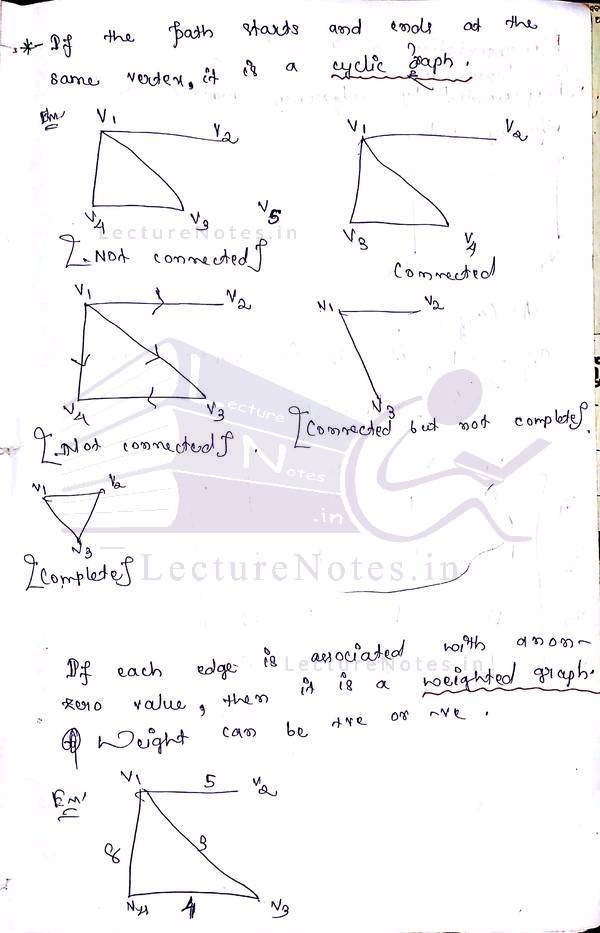 .*- If the path starts and ends at the
same vertex, it is a cyclic graph.
Ex:
V1 V2
V4 V3 V5
[Not connected]
V1 V2
V3 V4
Connected
V1 V2
V4 V3
[Not connected].
V1 V2
V3
[Connected but not complete].
V1 V2
V3
[Complete]
LectureNotes.in
Lecture
Notes
.in
LectureNotes.in
If each edge is associated with a non-
LectureNotes.in
zero value, then it is a weighted graph.
Weight can be +ve or -ve.
Ex:
V1 5 V2
8 3
V4 4 V3